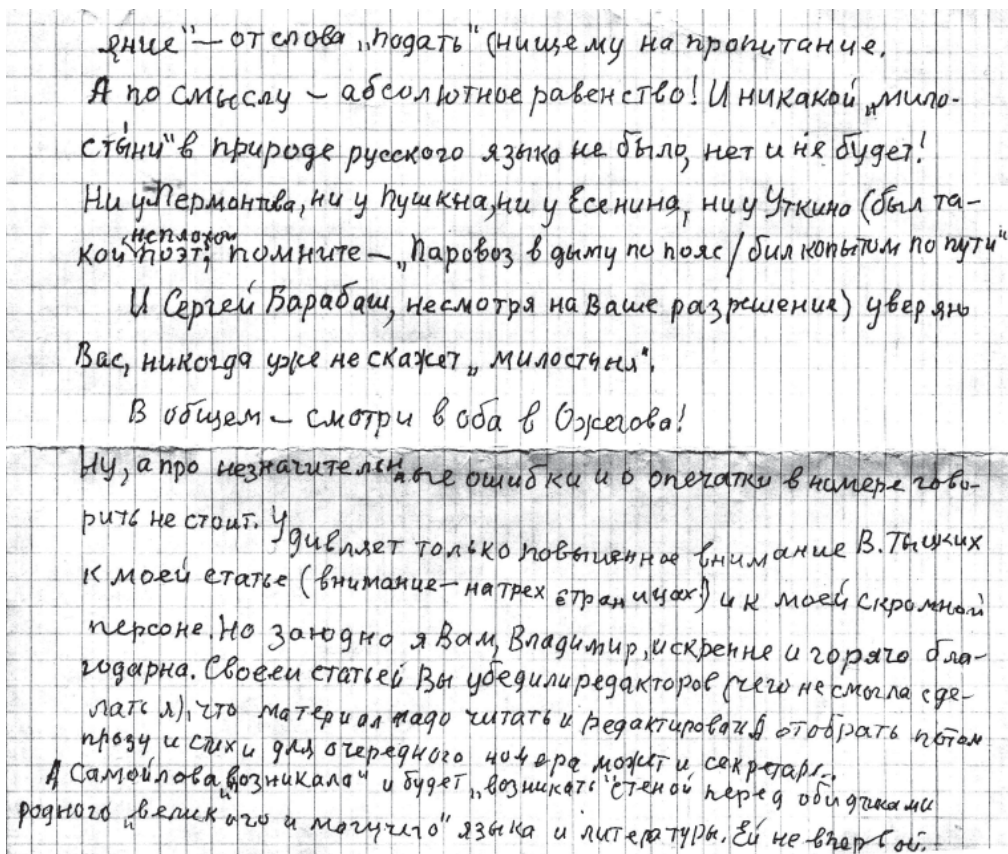 яние" — от слова „подать" (нищему на пропитание.
А по смыслу — абсолютное равенство! И никакой „мило-
стыни" в природе русского языка не было, нет и не будет!
Ни у Лермонтова, ни у Пушкина, ни у Есенина, ни у Уткина (был та-
кой неплохой поэт; помните — „Паровоз в дыму по пояс / бил копытом по пути"
И Сергей Барабаш, несмотря на Ваше разрешение) уверяю
Вас, никогда уже не скажет „милостыня".
В общем — смотри в оба в Ожегова!
Ну, а про незначительные ошибки и о опечатки в номере гово-
рить не стоит. Удивляет только повышенное внимание В. Тыцких
к моей статье (внимание — на трех страницах!) и к моей скромной
персоне. Но заодно я Вам, Владимир, искренне и горячо бла-
годарна. Своей статьей Вы убедили редакторов (чего не смогла сде-
лать я), что материал надо читать и редактировать. А отобрать потом
прозу и стихи для очередного номера может и секретарь.
А Самойлова „возникала" и будет „возникать" стеной перед обидчиками
родного „великого и могучего" языка и литературы. Ей не впервой.